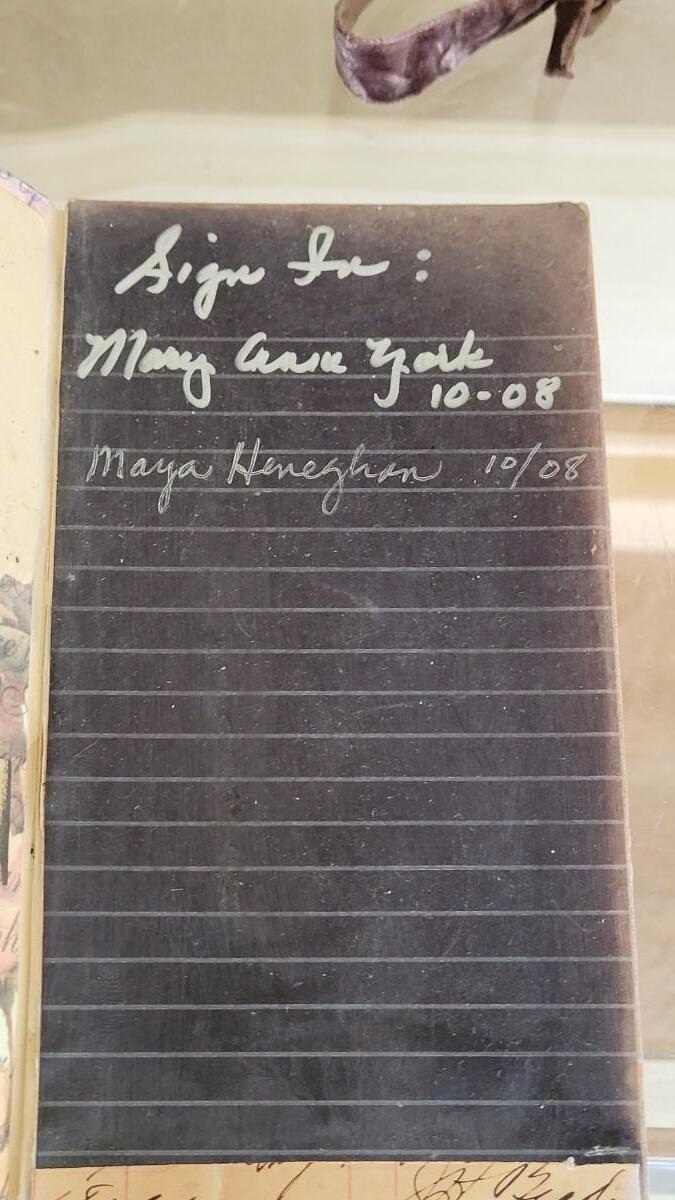 Sign In :
Mary Ann York
10-08
Maya Heneghan 10/08